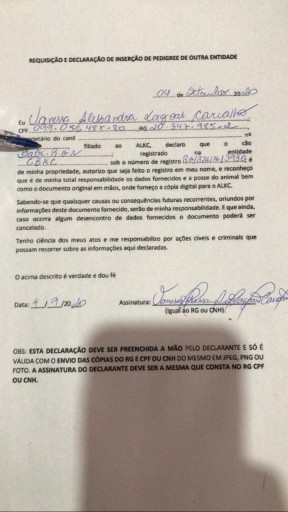 REQUISIÇÃO E DECLARAÇÃO DE INSERÇÃO DE PEDIGREE DE OUTRA ENTIDADE
04 de Setembro 2020
Eu Vanessa Alessandra Lagoas Carvalho
CPF RG
do canil nº
filiado ao ALKC, declaro que o cão
registrado na entidade
CBKC sob o número de registro é
de minha propriedade, autorizo que seja feito o registro em meu nome, e reconheço
que é de minha total responsabilidade os dados fornecidos e a posse do animal bem
como o documento original em mãos, onde forneço a cópia digital para o ALKC.
Sabendo-se que quaisquer causas ou consequências futuras recorrentes, oriundos por
informações deste documento fornecido, serão de minha responsabilidade. E que ainda,
caso ocorra algum desencontro de dados fornecidos o documento poderá ser
cancelado.
Tenho ciência dos meus atos e me responsabilizo por ações cíveis e criminais que
possam recorrer sobre as informações aqui declaradas.
O acima descrito é verdade e dou fé
Data: 4 / 9 /2020 Assinatura:
(Igual ao RG ou CNH)
OBS: ESTA DECLARAÇÃO DEVE SER PREENCHIDA A MÃO PELO DECLARANTE E SÓ É
VÁLIDA COM O ENVIO DAS CÓPIAS DO RG E CPF OU CNH DO MESMO EM JPEG, PNG OU
FOTO. A ASSINATURA DO DECLARANTE DEVE SER A MESMA QUE CONSTA NO RG CPF
OU CNH.